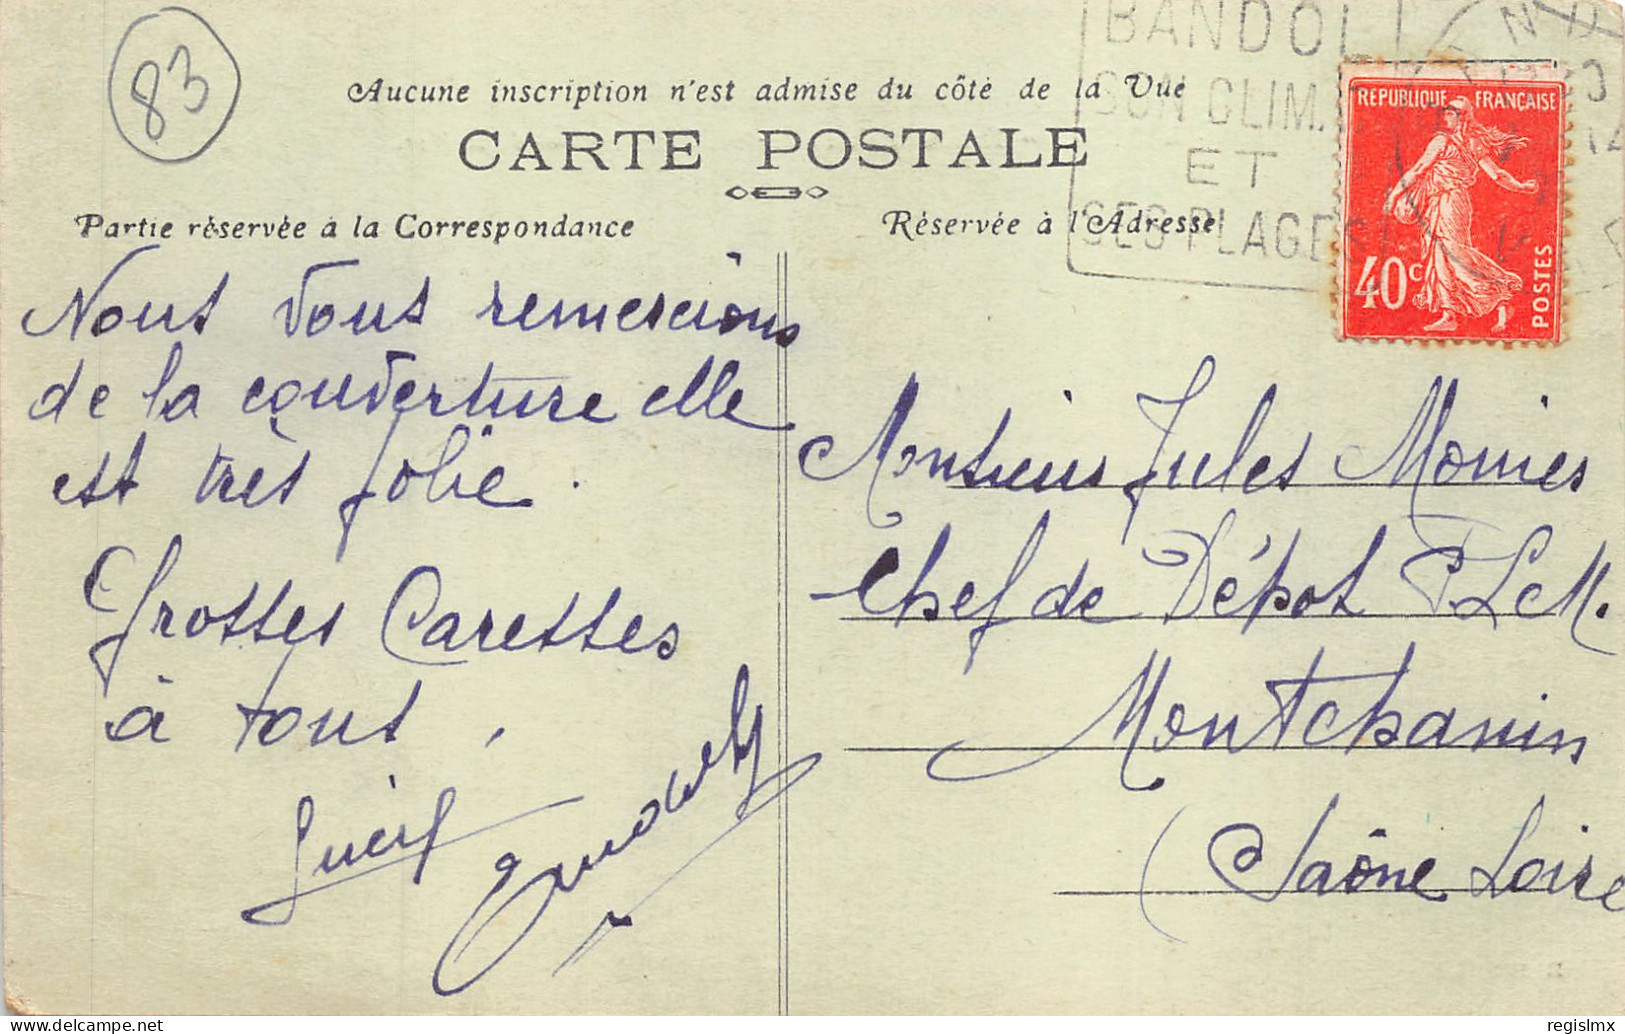 83
Aucune inscription n'est admise du côté de la Vue
CARTE POSTALE
Partie réservée à la Correspondance
Réservée à l'Adresse
BANDOL
SON CLIMAT
ET
SES PLAGES
RÉPUBLIQUE FRANÇAISE
40c
POSTES
Nous vous remercions
de la couverture elle
est très jolie.
Grosses Caresses
à tous,
Monsieur Jules
Chef de Dépôt P L M.
Montchanin
(Saône Loire
delcampe.net
regislmx